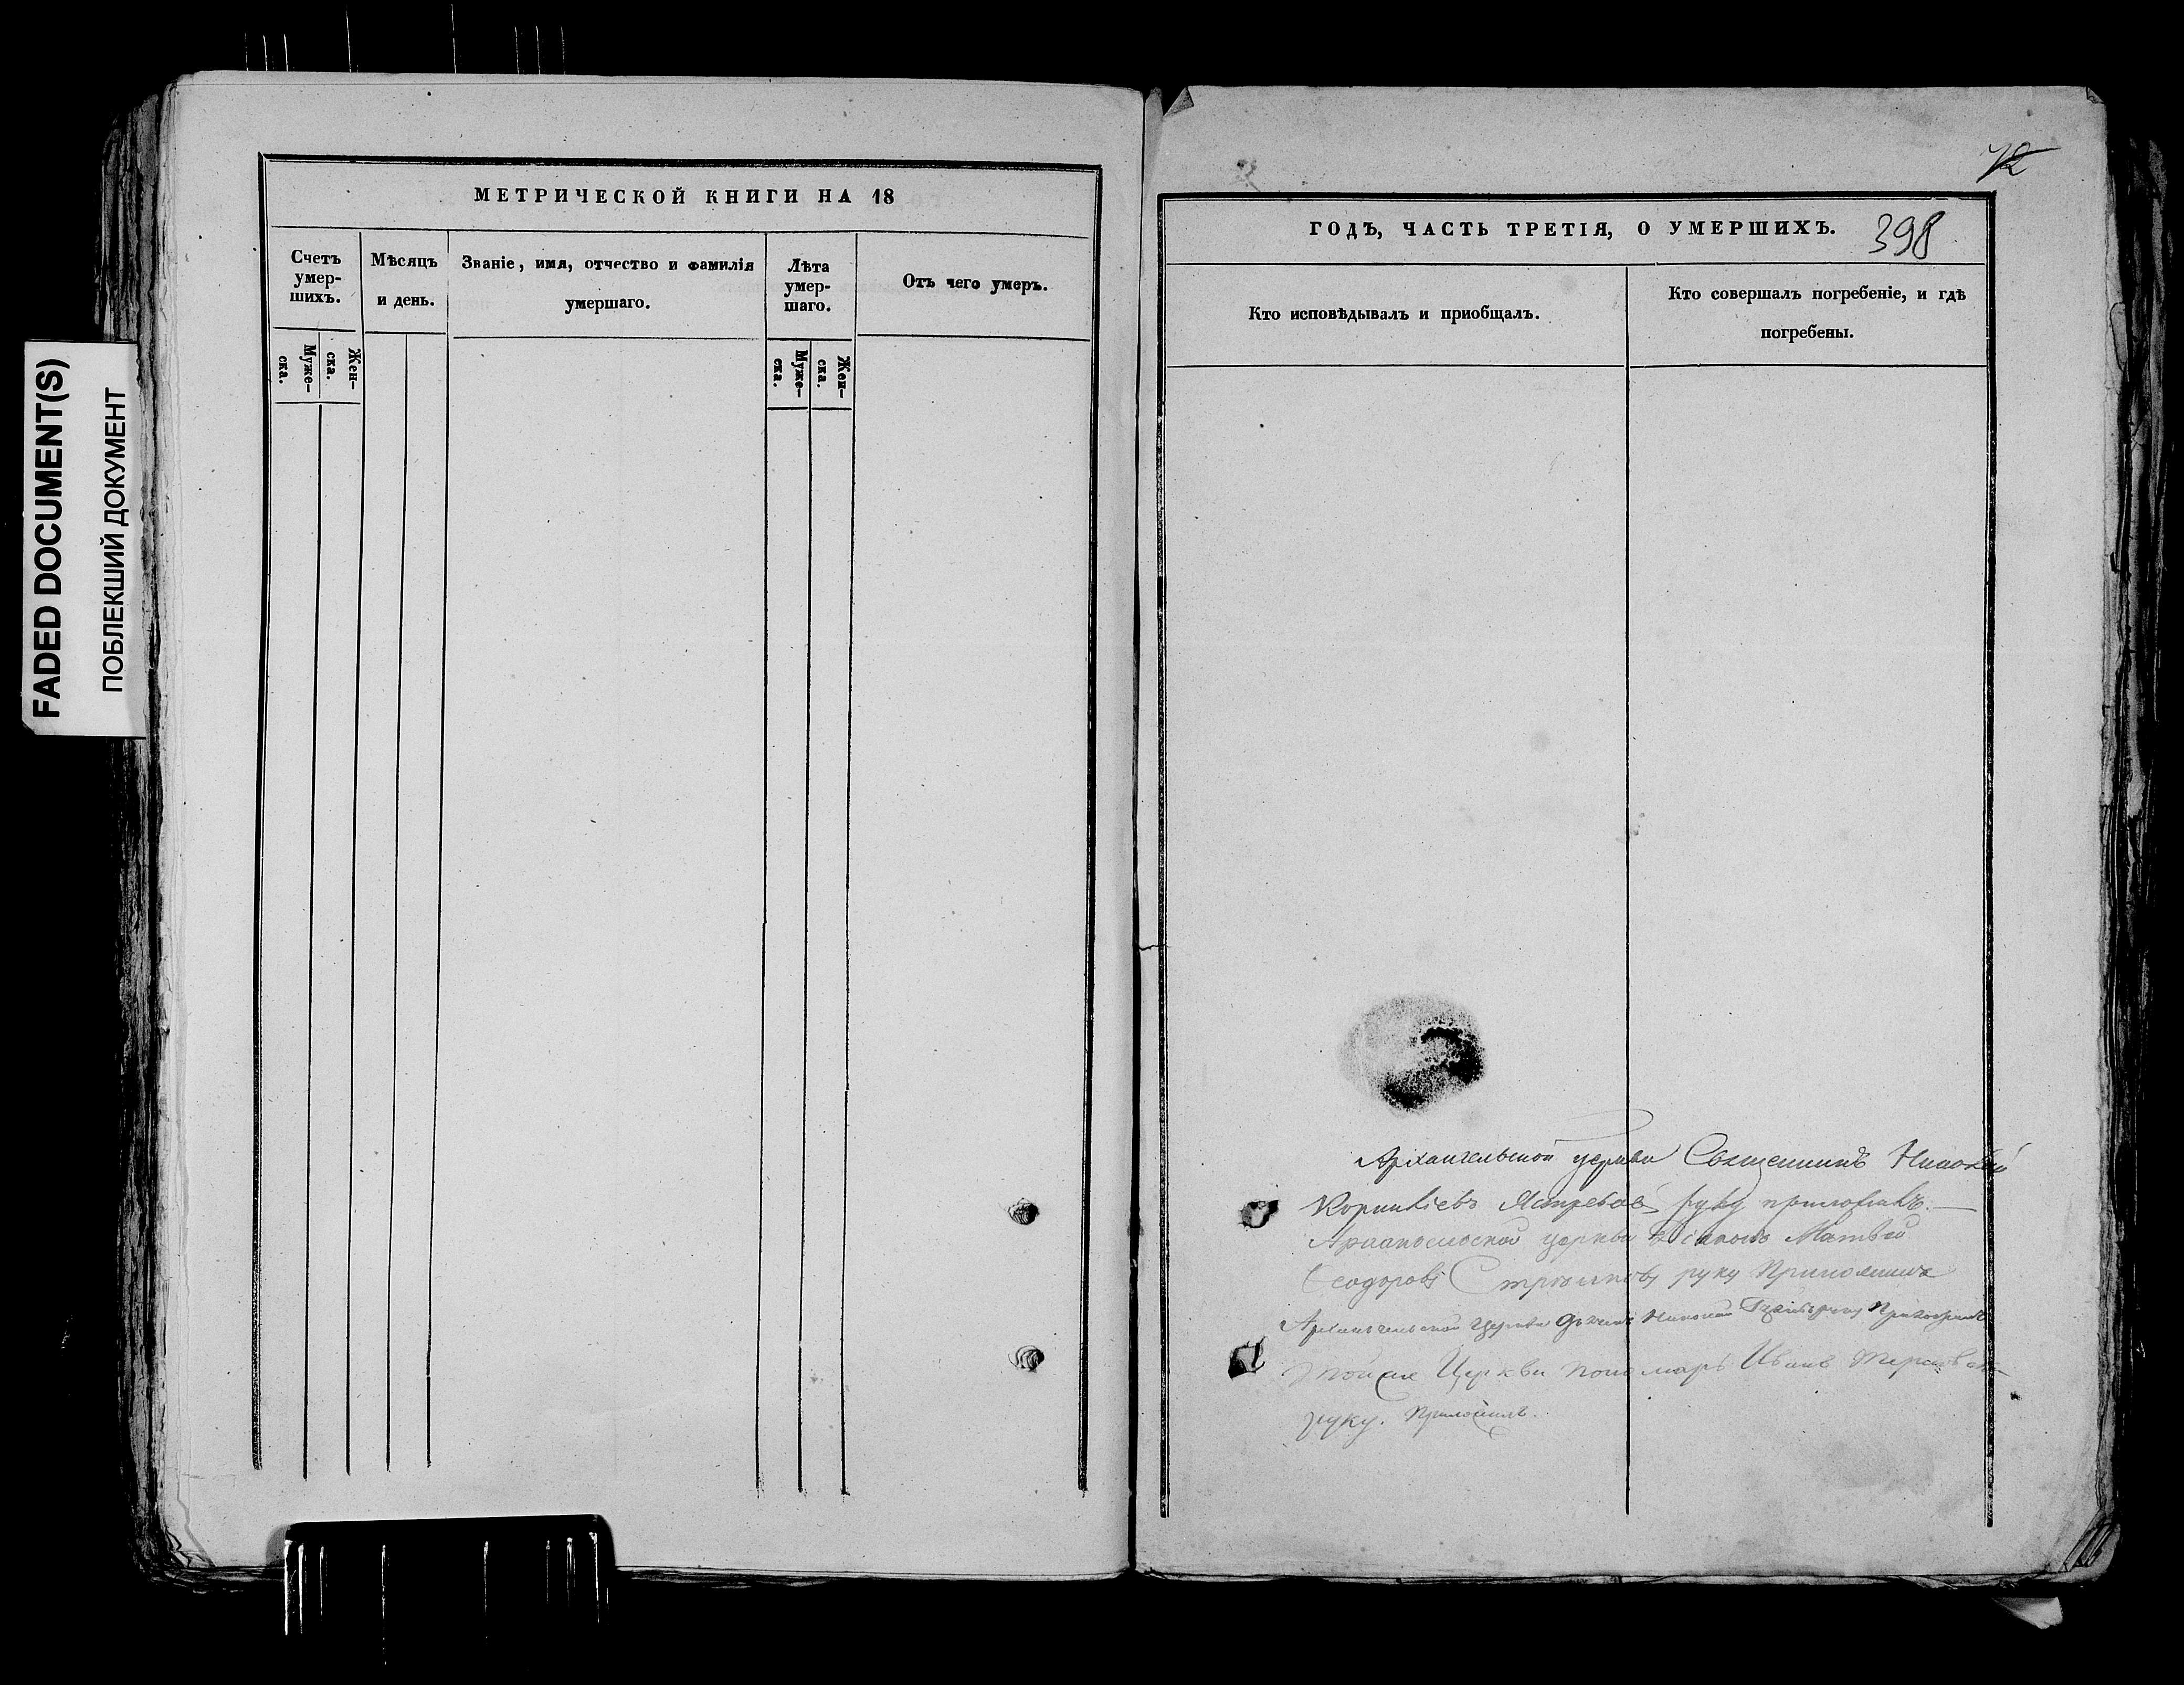 FADED DOCUMENT(S)
ПОБЛЕКШИЙ ДОКУМЕНТ
МЕТРИЧЕСКОЙ КНИГИ НА 18
Счетъ умер-
шихъ.
Мѣсяцъ
и день.
Званіе, имя, отчество и фамилія
умершаго.
Лѣта
умер-
шаго.
Отъ чего умеръ.
Муже-
ска.
Жен-
ска.
Муже-
ска.
Жен-
ска.
72
ГОДЪ, ЧАСТЬ ТРЕТІЯ, О УМЕРШИХЪ.
398
Кто исповѣдывалъ и пріобщалъ.
Кто совершалъ погребеніе, и гдѣ
погребены.
Архангельской церкви Священникъ Николай
Корниліевъ Ястребовъ руку приложилъ.
Архангельской церкви Діаконъ Матвей
Феодоровъ руку Приложилъ
Архангельской Церкви Дьячекъ Николай
тойже Церкви пономарь Иванъ
руку. Приложилъ.